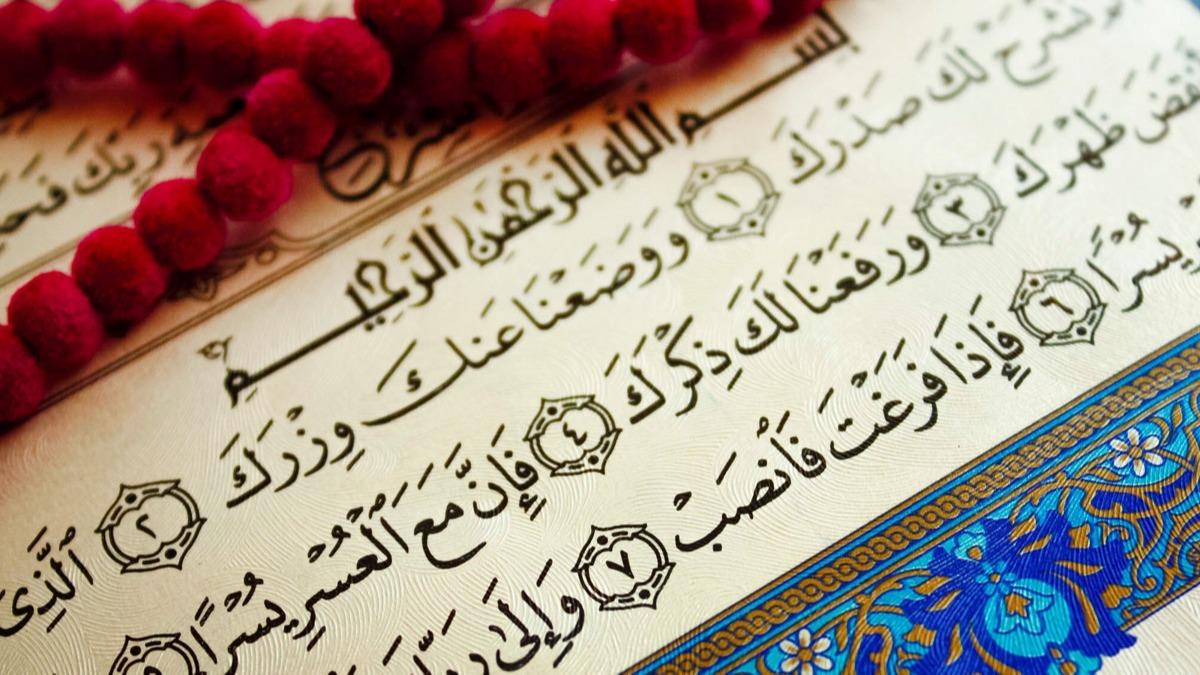 رَبِّكَ
بِسْمِ اللَّهِ الرَّحْمَٰنِ الرَّحِيمِ
نَشْرَحْ لَكَ صَدْرَكَ ١ وَوَضَعْنَا عَنكَ وِزْرَكَ ٢ ٱلَّذِىٓ
ظَهْرَكَ ٣ وَرَفَعْنَا لَكَ ذِكْرَكَ ٤ فَإِنَّ مَعَ ٱلْعُسْرِ يُسْرًا ٥
يُسْرًا ٦ فَإِذَا فَرَغْتَ فَٱنصَبْ ٧ وَإِلَىٰ